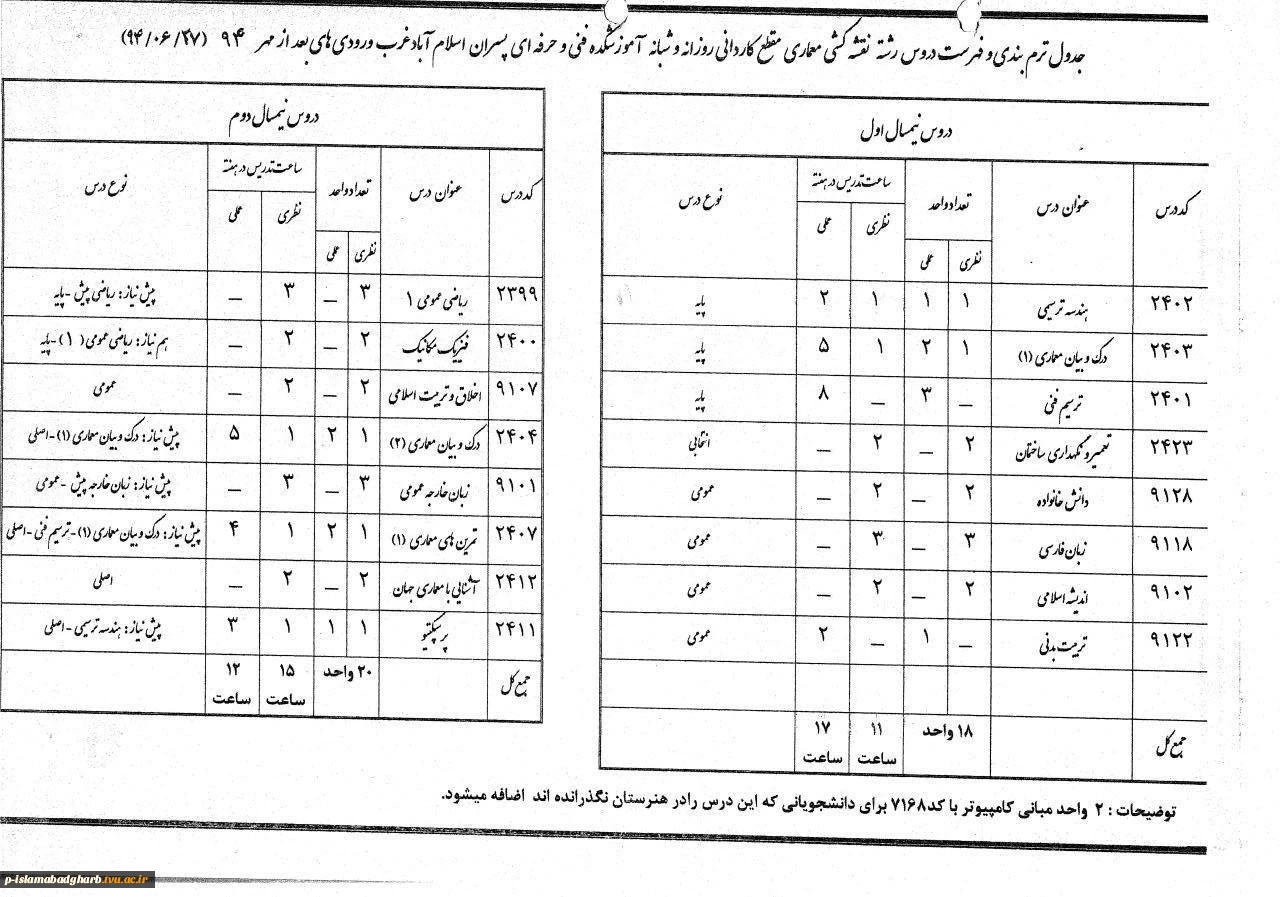 جدول ترم بندی و فهرست دروس رشته نقشه کشی معماری مقطع کاردانی روزانه و شبانه آموزشکده فنی و حرفه ای پسران اسلام آباد غرب ورودی های بعد از مهر ۹۴ (۹۴/۰۶/۲۷)
دروس نیمسال اول
کد درس عنوان درس تعداد واحد ساعت تدریس در هفته نوع درس
نظری عملی نظری عملی
۲۴۰۲ هندسه ترسیمی ۱ ۱ ۱ ۲ پایه
۲۴۰۳ درک و بیان معماری (۱) ۱ ۲ ۱ ۵ پایه
۲۴۰۱ ترسیم فنی – ۳ – ۸ پایه
۲۴۲۳ تعمیر و نگهداری ساختمان ۲ – ۲ – انتخابی
۹۱۲۸ دانش خانواده ۲ – ۲ – عمومی
۹۱۱۸ زبان فارسی ۳ – ۳ – عمومی
۹۱۰۲ اندیشه اسلامی ۲ – ۲ – عمومی
۹۱۲۲ تربیت بدنی – ۱ – ۲ عمومی
جمع کل ۱۸ واحد ۱۱ ساعت ۱۷ ساعت
دروس نیمسال دوم
کد درس عنوان درس تعداد واحد ساعت تدریس در هفته نوع درس
نظری عملی نظری عملی
۲۳۹۹ ریاضی عمومی ۱ ۳ – ۳ – پیش نیاز: ریاضی پیش -پایه
۲۴۰۰ فیزیک مکانیک ۲ – ۲ – هم نیاز: ریاضی عمومی (۱)-پایه
۹۱۰۷ اخلاق و تربیت اسلامی ۲ – ۲ – عمومی
۲۴۰۴ درک و بیان معماری (۲) ۱ ۲ ۱ ۵ پیش نیاز: درک و بیان معماری (۱)-اصلی
۹۱۰۱ زبان خارجه عمومی ۳ – ۳ – پیش نیاز: زبان خارجه پیش -عمومی
۲۴۰۷ تمرین های معماری (۱) ۱ ۲ ۱ ۴ پیش نیاز: درک و بیان معماری (۱)-ترسیم فنی -اصلی
۲۴۱۲ آشنایی با معماری جهان ۲ – ۲ – اصلی
۲۴۱۱ پرسپکتیو ۱ ۱ ۱ ۳ پیش نیاز: هندسه ترسیمی -اصلی
جمع کل ۲۰ واحد ۱۵ ساعت ۱۲ ساعت
توضیحات : ۲ واحد مبانی کامپیوتر با کد۷۱۶۸ برای دانشجویانی که این درس رادر هنرستان نگذرانده اند اضافه میشود.
p-islamabadgharb.tvu.ac.ir